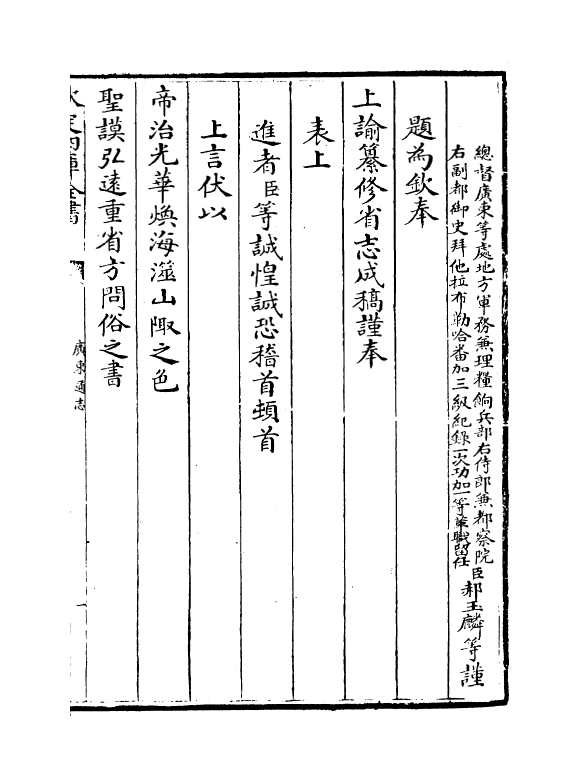 總督廣東等處地方軍務兼理糧餉兵部右侍郎兼都察院
右副都御史拜他拉布勒哈番加三級紀錄一次功加一等革職留任
臣郝玉麟等謹
題為欽奉
上諭纂修省志成稿謹奉
表上
進者臣等誠惶誠恐稽首頓首
上言伏以
帝治光華煥海澨山陬之色
聖謨弘遠重省方問俗之書
欽定四庫全書
廣東通志
一